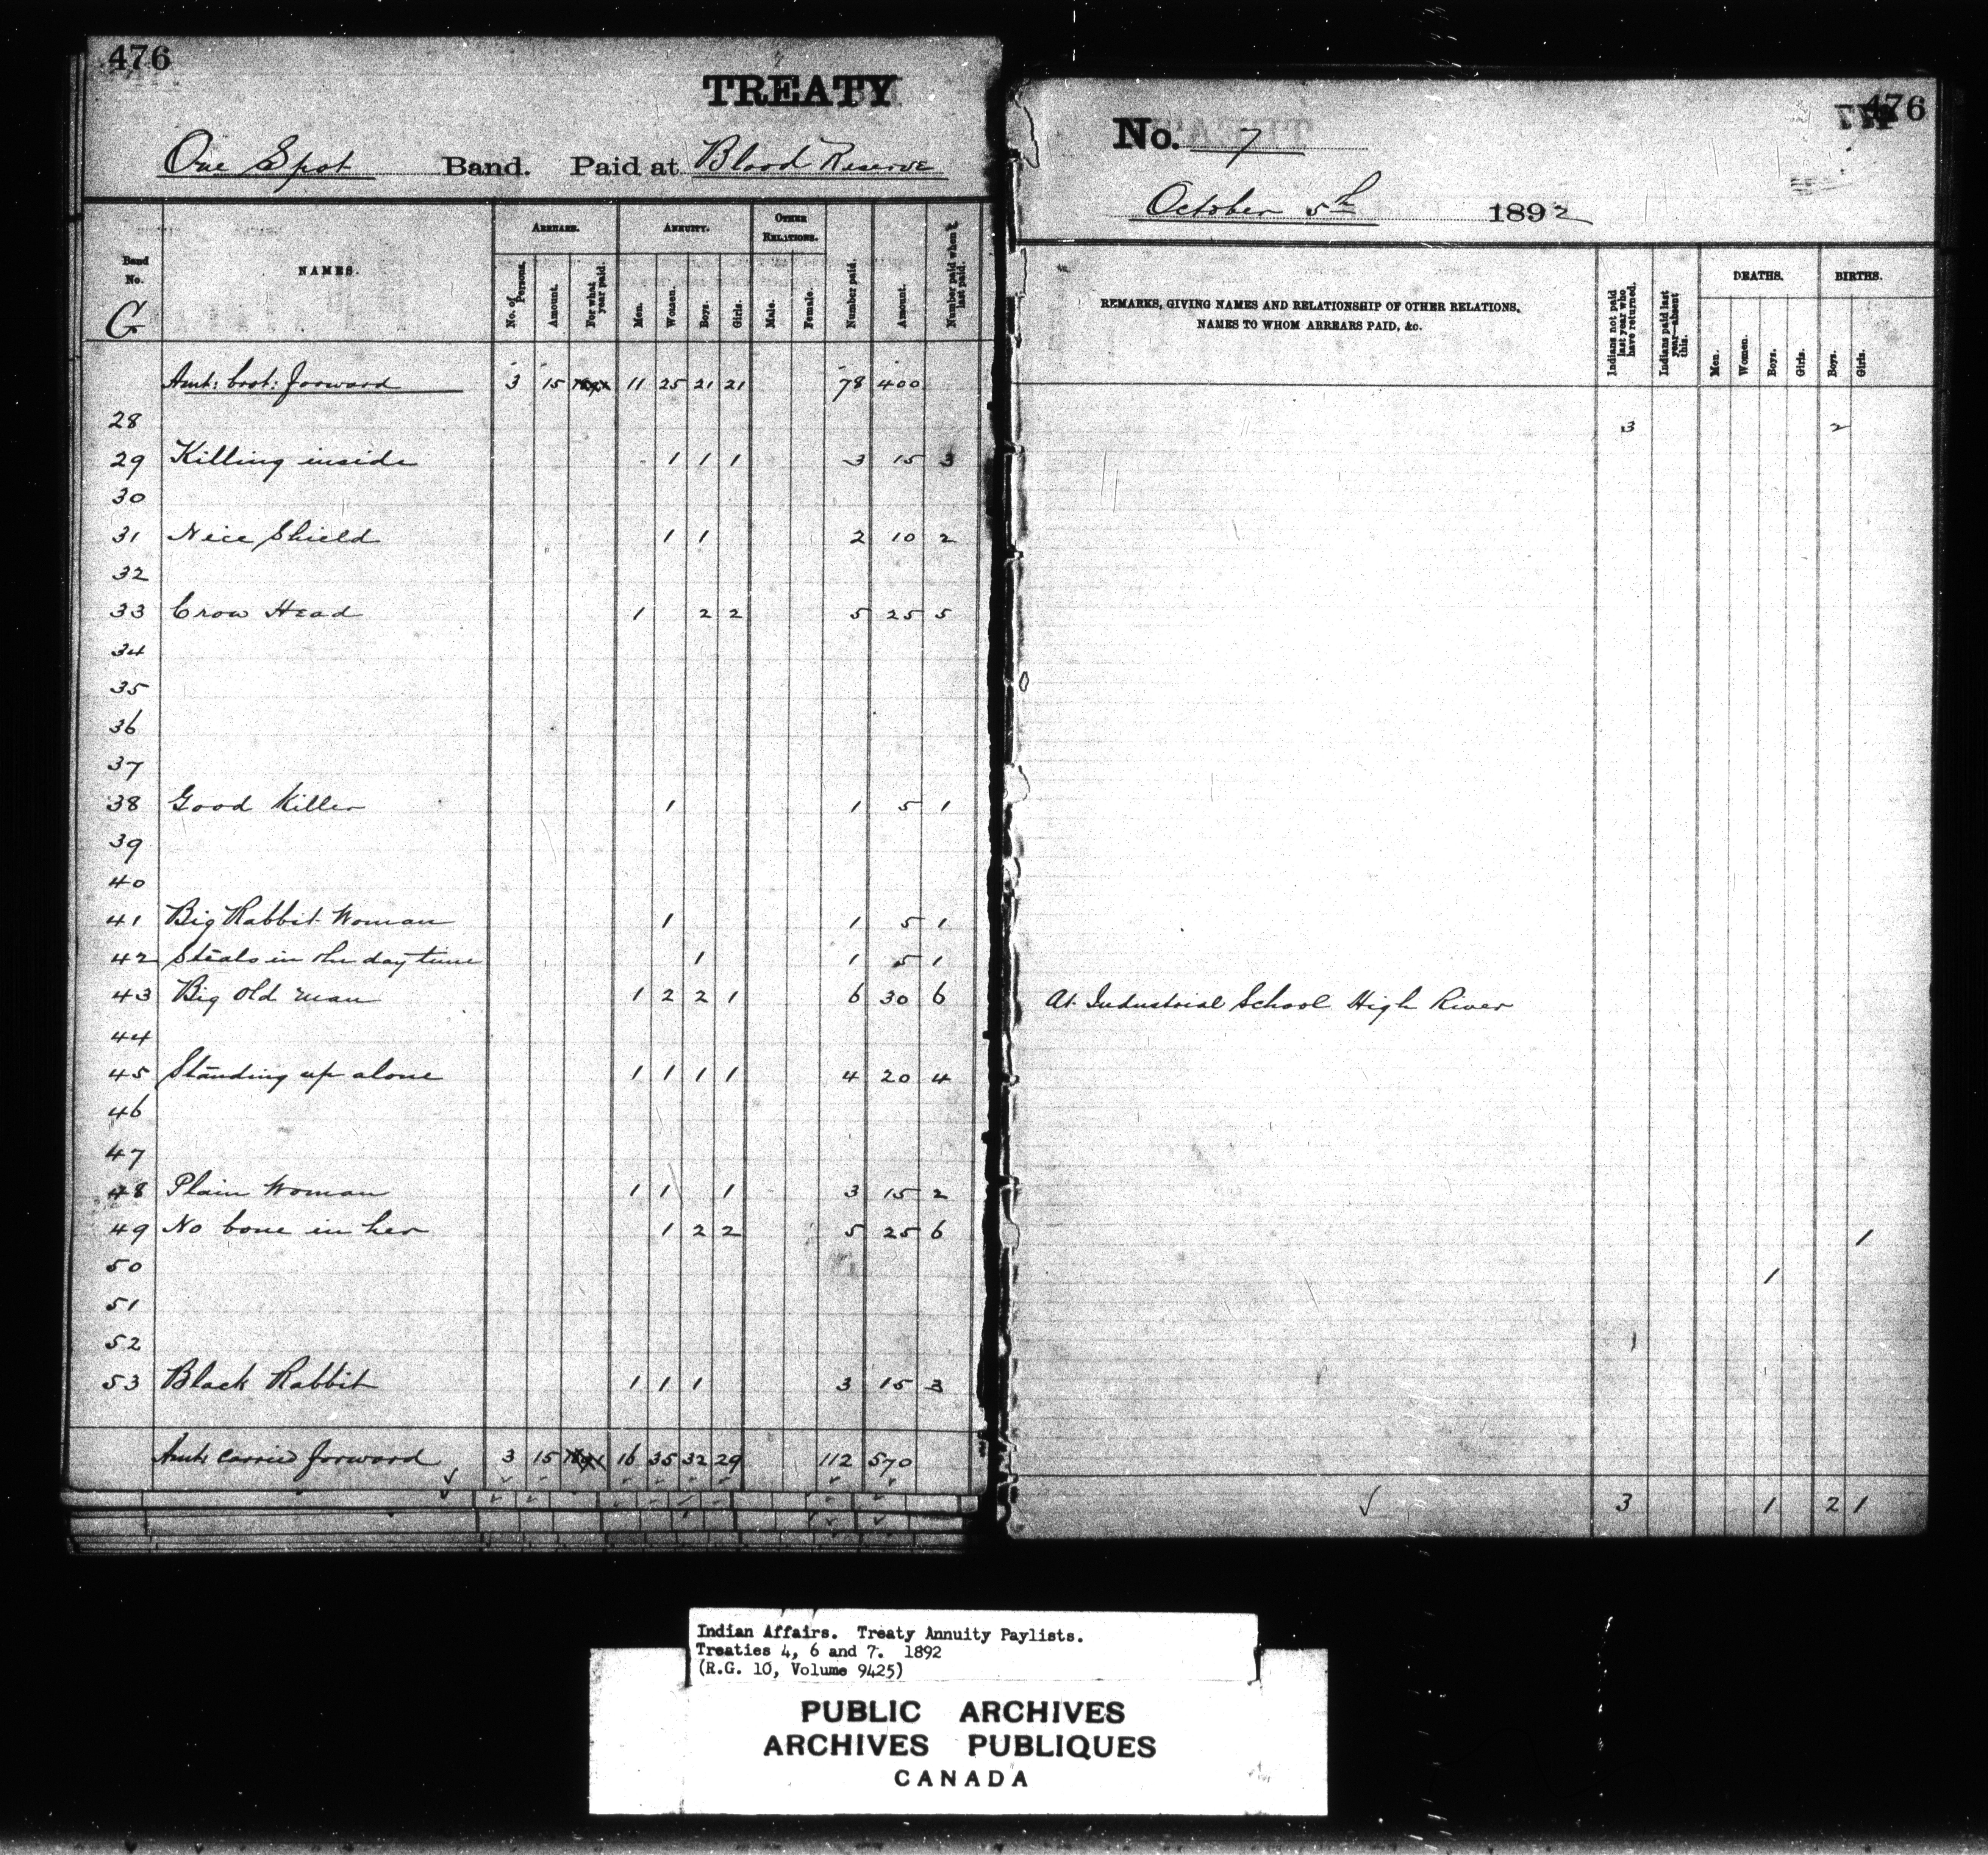 476
TREATY
One Spot Band. Paid at Blood Reserve
Band No. NAMES. ARREARS. ANNUITY. OTHER RELATIONS.
No. of Persons. Amount. For what year paid. Men. Women. Boys. Girls. Male. Female. Number paid. Amount. Number paid when last paid.
G
Amt: brot: forward 3 15 11 25 21 21 78 400
28
29 Killing inside 1 1 1 3 15 3
30
31 Nice Shield 1 1 2 10 2
32
33 Crow Head 1 2 2 5 25 5
34
35
36
37
38 Good Killer 1 1 5 1
39
40
41 Big Rabbit Woman 1 1 5 1
42 Steals in the day time 1 1 5 1
43 Big Old man 1 2 2 1 6 30 6
44
45 Standing up alone 1 1 1 1 4 20 4
46
47
48 Plain Woman 1 1 1 3 15 2
49 No bone in her 1 2 2 5 25 6
50
51
52
53 Black Rabbit 1 1 1 3 15 3
Amt carried forward 3 15 16 35 32 29 112 570
476
No. 7
October 5th 1892
REMARKS, GIVING NAMES AND RELATIONSHIP OF OTHER RELATIONS,
NAMES TO WHOM ARREARS PAID, &c.
Indians not paid last year who have returned. Indians paid last year—absent this. DEATHS. BIRTHS.
Men. Women. Boys. Girls. Boys. Girls.
3 2
At Industrial School High River
1
1
3 1 2 1
Indian Affairs. Treaty Annuity Paylists.
Treaties 4, 6 and 7. 1892
(R.G. 10, Volume 9425)
PUBLIC ARCHIVES
ARCHIVES PUBLIQUES
CANADA